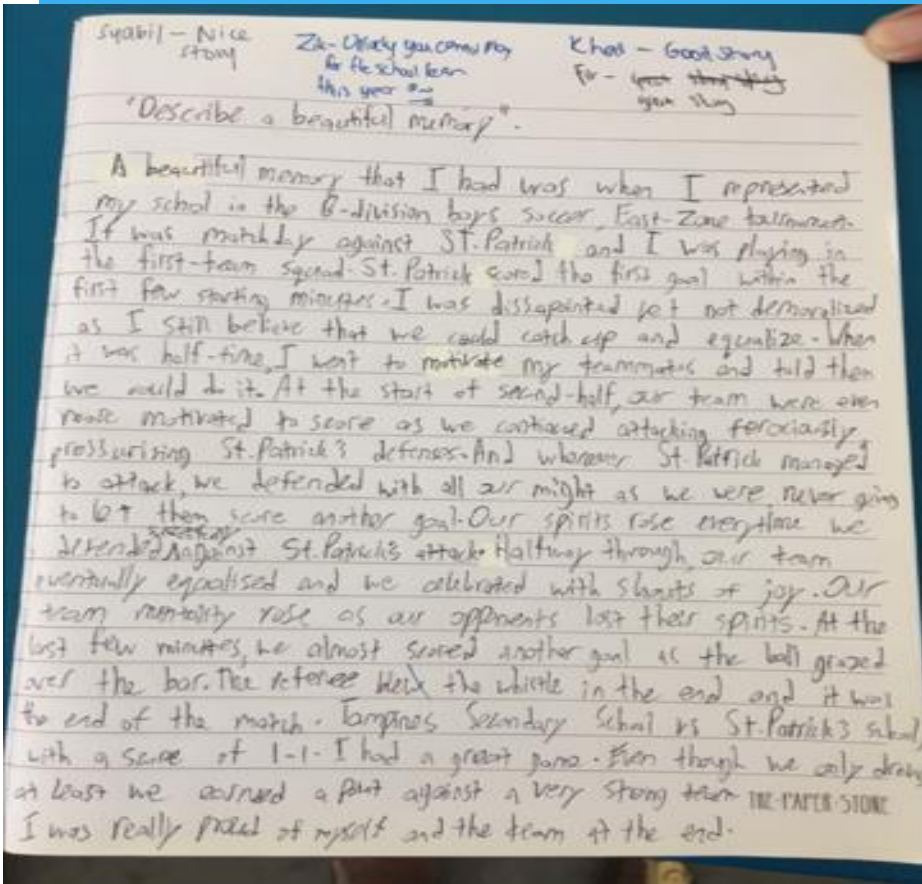 Syabil - Nice story
Zik - Unlucky you cannot play for the school team this year
Khai - Good Story
"Describe a beautiful memory".
A beautiful memory that I had was when I represented
my school in the B-division boys soccer, East-Zone tournament.
It was matchday against ST. Patrick and I was playing in
the first-team squad. St. Patrick scored the first goal within the
first few starting minutes. I was dissapointed yet not demoralized
as I still believe that we could catch up and equalize. When
it was half-time, I went to motivate my teammates and told them
we could do it. At the start of second-half, our team were even
more motivated to score as we continued attacking ferociously,
pressurising St. Patrick's defense. And whenever St. Patrick managed
to attack, we defended with all our might as we were never going
to let them score another goal. Our spirits rose everytime we
defended against St. Patrick's attack. Halfway through, our team
eventually equalised and we celebrated with shouts of joy. Our
team mentality rose as our opponents lost their spirits. At the
last few minutes, we almost scored another goal as the ball grazed
over the bar. The referee blew the whistle in the end and it was
the end of the match. Tampines Secondary School vs St. Patrick's school,
with a score of 1-1. I had a great game. Even though we only drew
at least we earned a point against a very strong team THE PAPER STONE
I was really proud of myself and the team at the end.